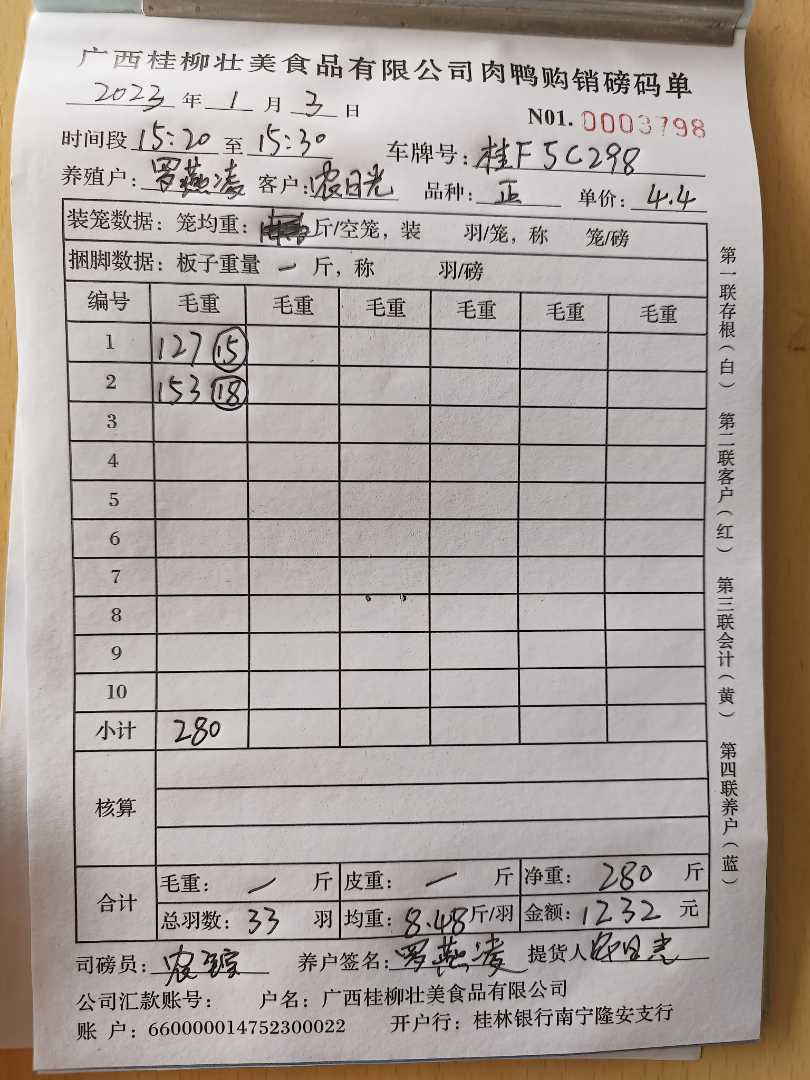 广西桂柳壮美食品有限公司肉鸭购销磅码单
2023 年 1 月 3 日 N01. 0003798
时间段 15:20 至 15:30 车牌号: 桂F5C298
养殖户: 罗燕凌 客户: 农日光 品种: 正 单价: 4.4
装笼数据: 笼均重: 斤/空笼, 装 羽/笼, 称 笼/磅
捆脚数据: 板子重量 一 斤, 称 羽/磅
编号 毛重 毛重 毛重 毛重 毛重 毛重
1 127 15
2 153 18
3
4
5
6
7
8
9
10
小计 280
核算
合计 毛重: 一 斤 皮重: 一 斤 净重: 280 斤
总羽数: 33 羽 均重: 8.48 斤/羽 金额: 1232 元
司磅员: 农 养户签名: 罗燕凌 提货人 农日光
公司汇款账号: 户名: 广西桂柳壮美食品有限公司
账 户: 660000014752300022 开户行: 桂林银行南宁隆安支行
第一联存根(白) 第二联客户(红) 第三联会计(黄) 第四联养户(蓝)